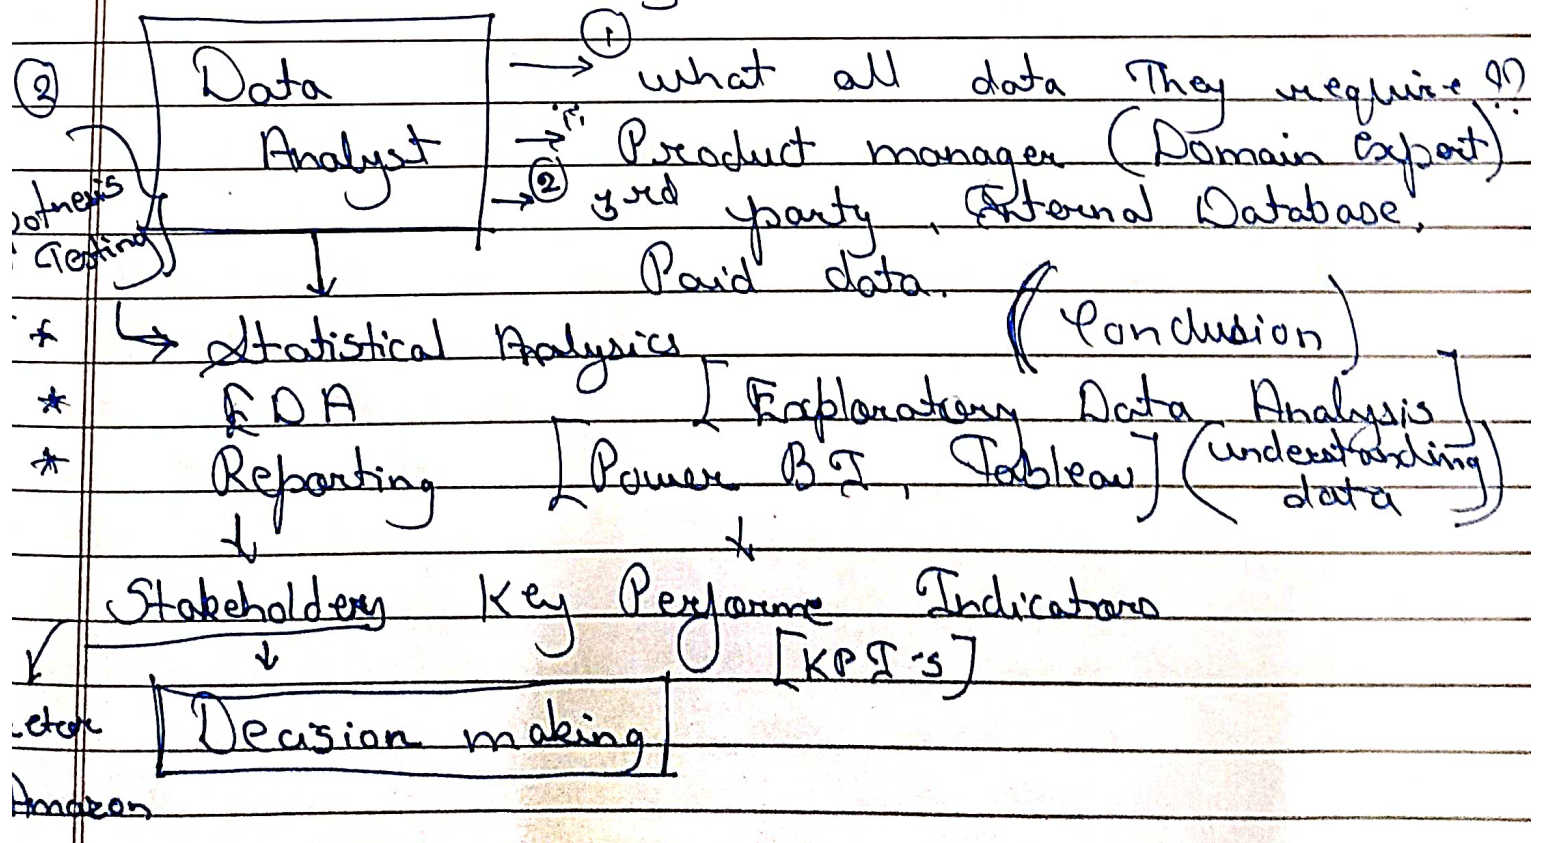 ①
② Data → what all data They require ??
Analyst → Product manager (Domain Expert)
→ ② 3rd party, Internal Database,
Testing
Paid data.
* → Statistical Analysics (Conclusion)
* EDA [Exploratory Data Analysis]
* Reporting [Power BI, Tableau] (understanding
data)
↓ ↓
Stakeholders Key Performe Indicators
↓ [KPI-s]
Decision making
Amazon